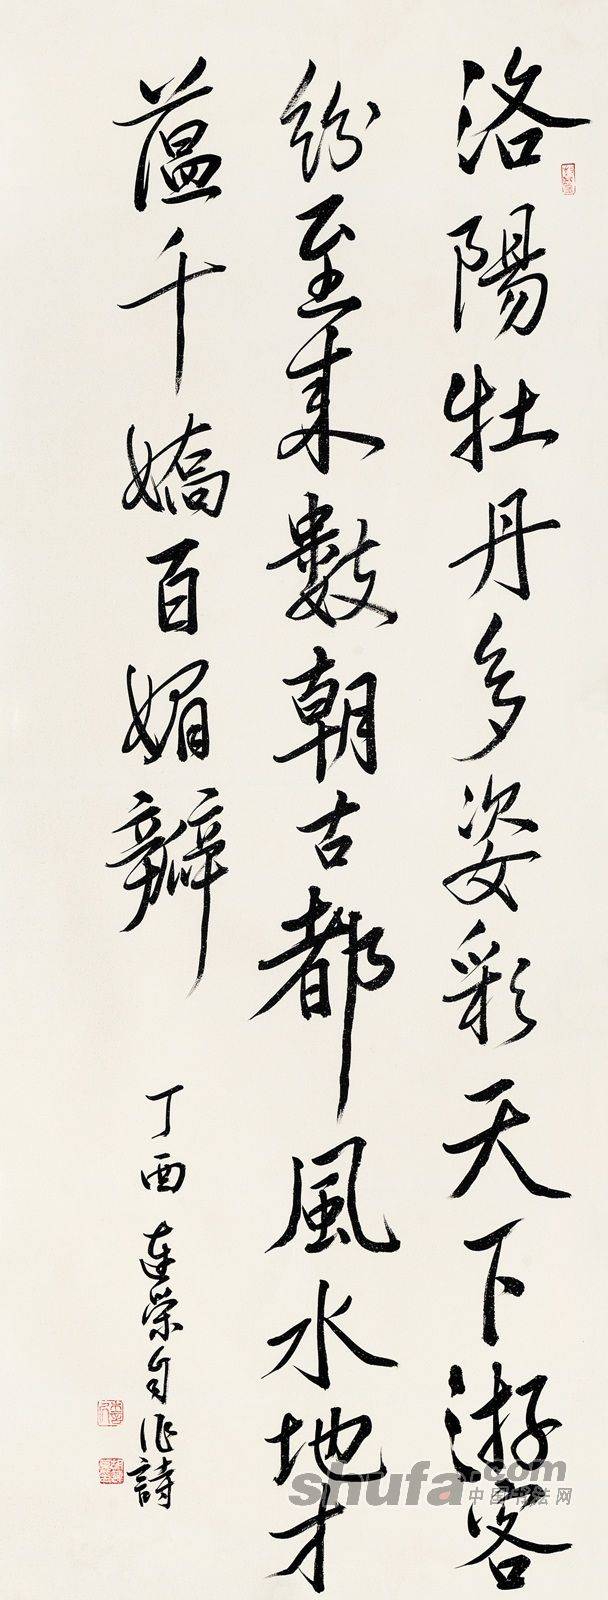 洛陽牡丹多姿彩天下游客
紛至来數朝古都風水地才
蕴千嬌百媚瓣
丁酉連榮自作詩
shufa.com
中国书法网